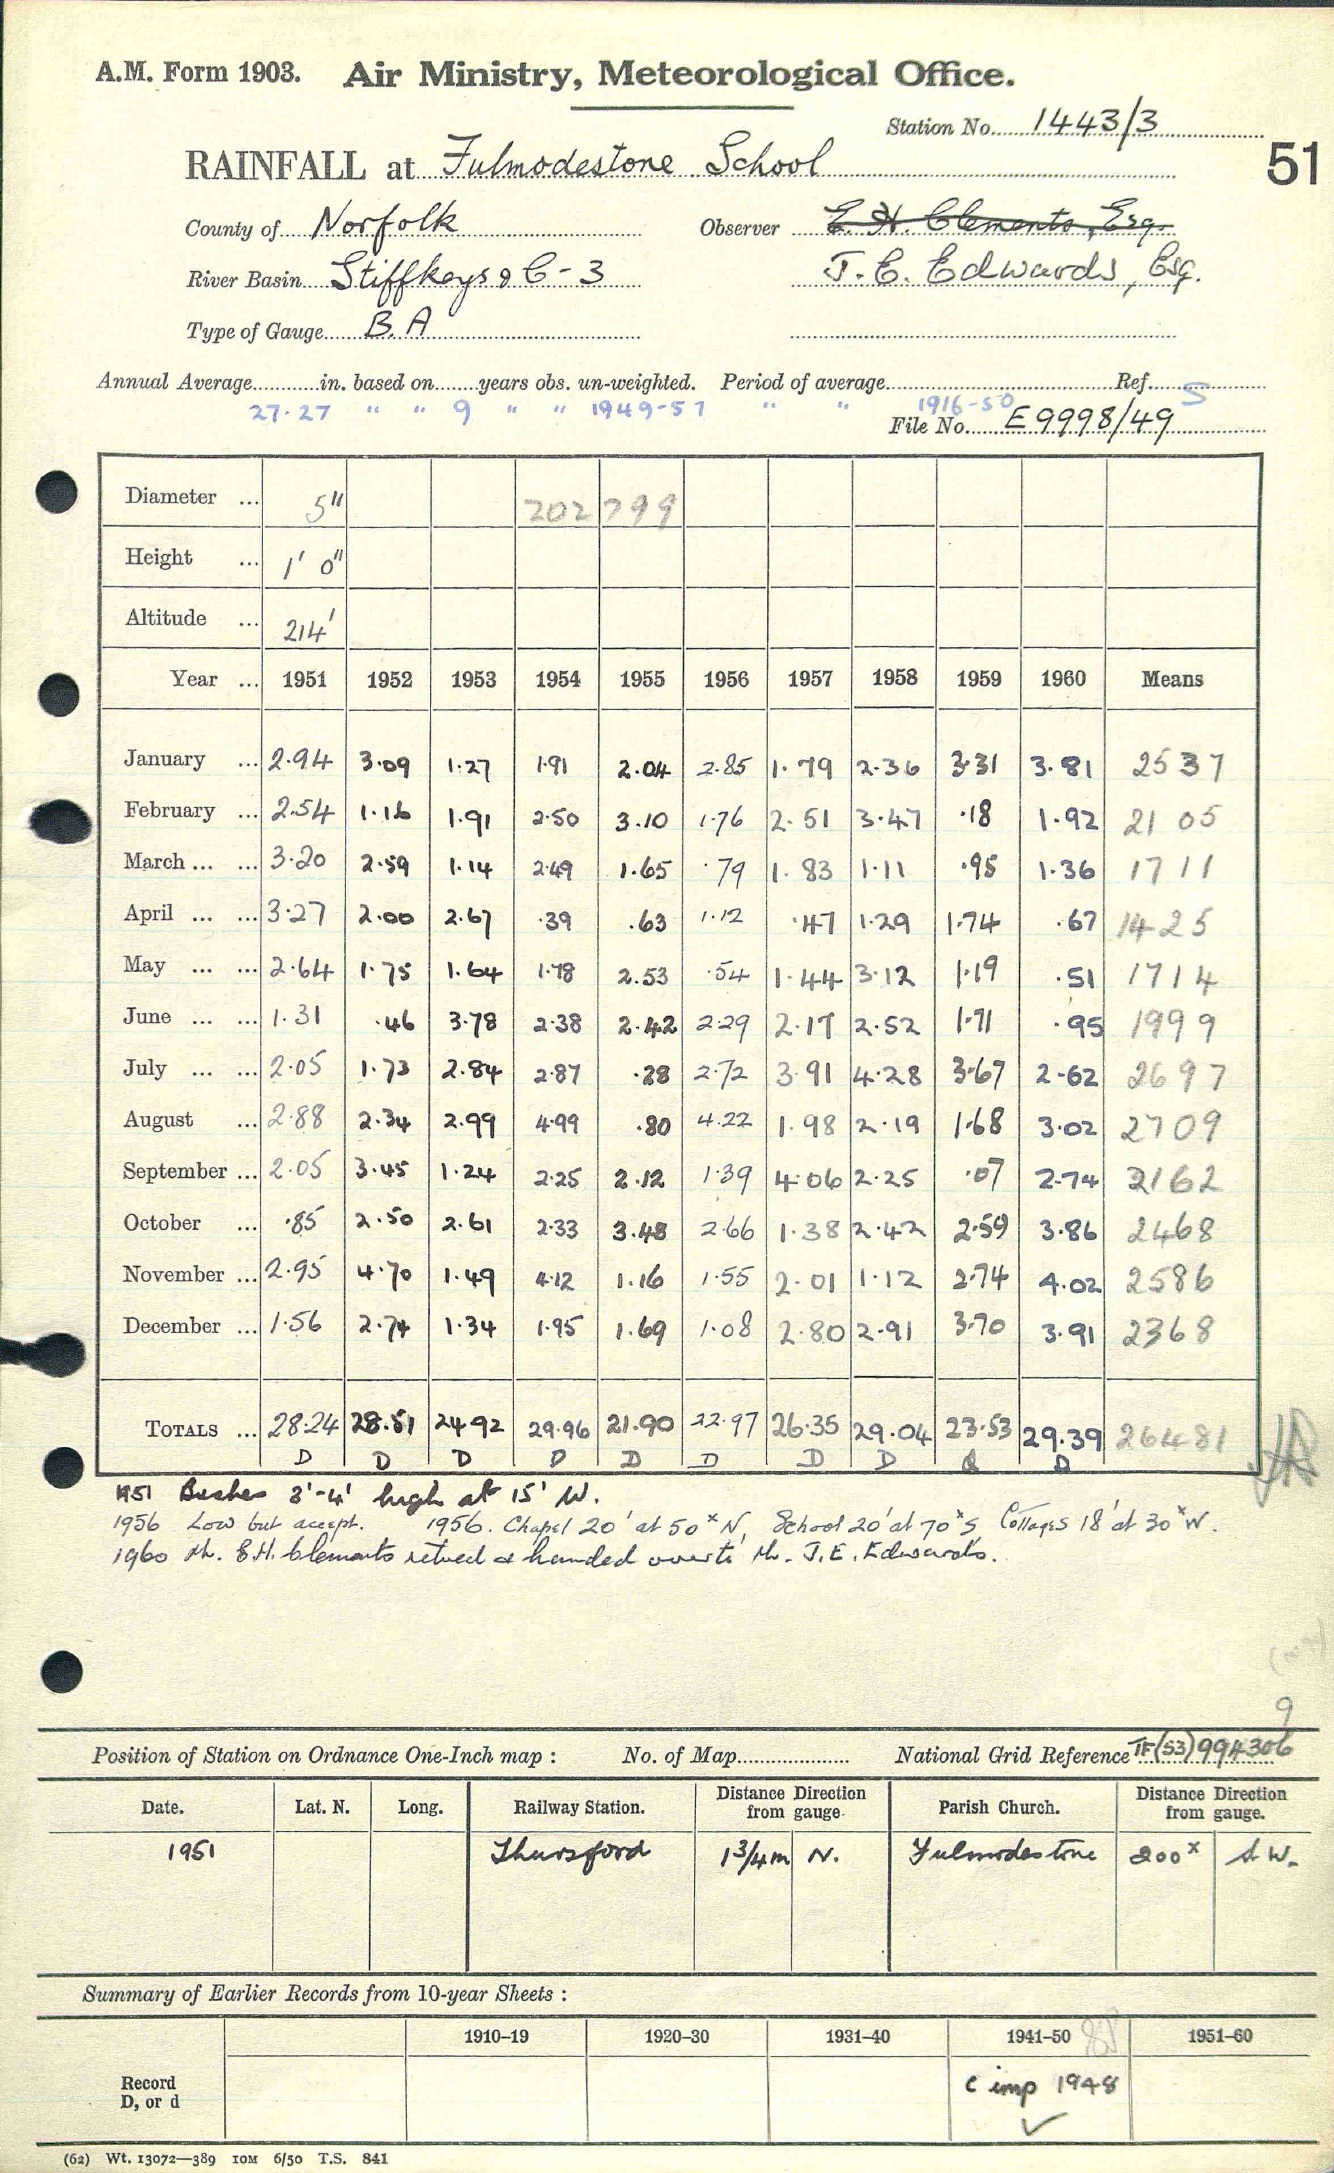 A.M. Form 1903. Air Ministry, Meteorological Office.
Station No. 1443/3
51
RAINFALL at Fulmodestone School
County of Norfolk Observer E. H. Clements, Esq.
River Basin Stiffkeys & C-3 J. E. Edwards, Esq.
Type of Gauge B.A
Annual Average in. based on years obs. un-weighted. Period of average Ref. S
27.27 " " 9 " " 1949-57 " " 1916-50
File No. E9998/49
Diameter ... 5" 202 799
Height ... 1' 0"
Altitude ... 214'
Year ... 1951 1952 1953 1954 1955 1956 1957 1958 1959 1960 Means
January ... 2.94 3.09 1.27 1.91 2.04 2.85 1.79 2.36 3.31 3.81 2537
February ... 2.54 1.16 1.91 2.50 3.10 1.76 2.51 3.47 .18 1.92 2105
March ... ... 3.20 2.59 1.14 2.49 1.65 .79 1.83 1.11 .95 1.36 1711
April ... ... 3.27 2.00 2.67 .39 .63 1.12 .47 1.29 1.74 .67 1425
May ... ... 2.64 1.75 1.64 1.78 2.53 .54 1.44 3.12 1.19 .51 1714
June ... ... 1.31 .46 3.78 2.38 2.42 2.29 2.17 2.52 1.71 .95 1999
July ... ... 2.05 1.73 2.84 2.87 .28 2.72 3.91 4.28 3.67 2.62 2697
August ... 2.88 2.34 2.99 4.99 .80 4.22 1.98 2.19 1.68 3.02 2709
September ... 2.05 3.45 1.24 2.25 2.12 1.39 4.06 2.25 .07 2.74 2162
October ... .85 2.50 2.61 2.33 3.48 2.66 1.38 2.42 2.59 3.86 2468
November ... 2.95 4.70 1.49 4.12 1.16 1.55 2.01 1.12 2.74 4.02 2586
December ... 1.56 2.74 1.34 1.95 1.69 1.08 2.80 2.91 3.70 3.91 2368
TOTALS ... 28.24 28.51 24.92 29.96 21.90 22.97 26.35 29.04 23.53 29.39 26481
D D D D D D D D D
1951 Bushes 3'-4' high at 15' W.
1956 Low but accept. 1956. Chapel 20' at 50ˣ N, School 20' at 70ˣ S, Cottages 18' at 30ˣ W.
1960 Mr. E.H. Clements retired & handed over to Mr. J.E. Edwards.
9
Position of Station on Ordnance One-Inch map : No. of Map National Grid Reference TF(53)994306
Date. Lat. N. Long. Railway Station. Distance Direction from gauge. Parish Church. Distance Direction from gauge.
1951 Thursford 1¾m N. Fulmodestone 200ˣ S.W.
Summary of Earlier Records from 10-year Sheets :
1910–19 1920–30 1931–40 1941–50 1951–60
Record D, or d C imp 1948
(62) Wt. 13072—389 10M 6/50 T.S. 841